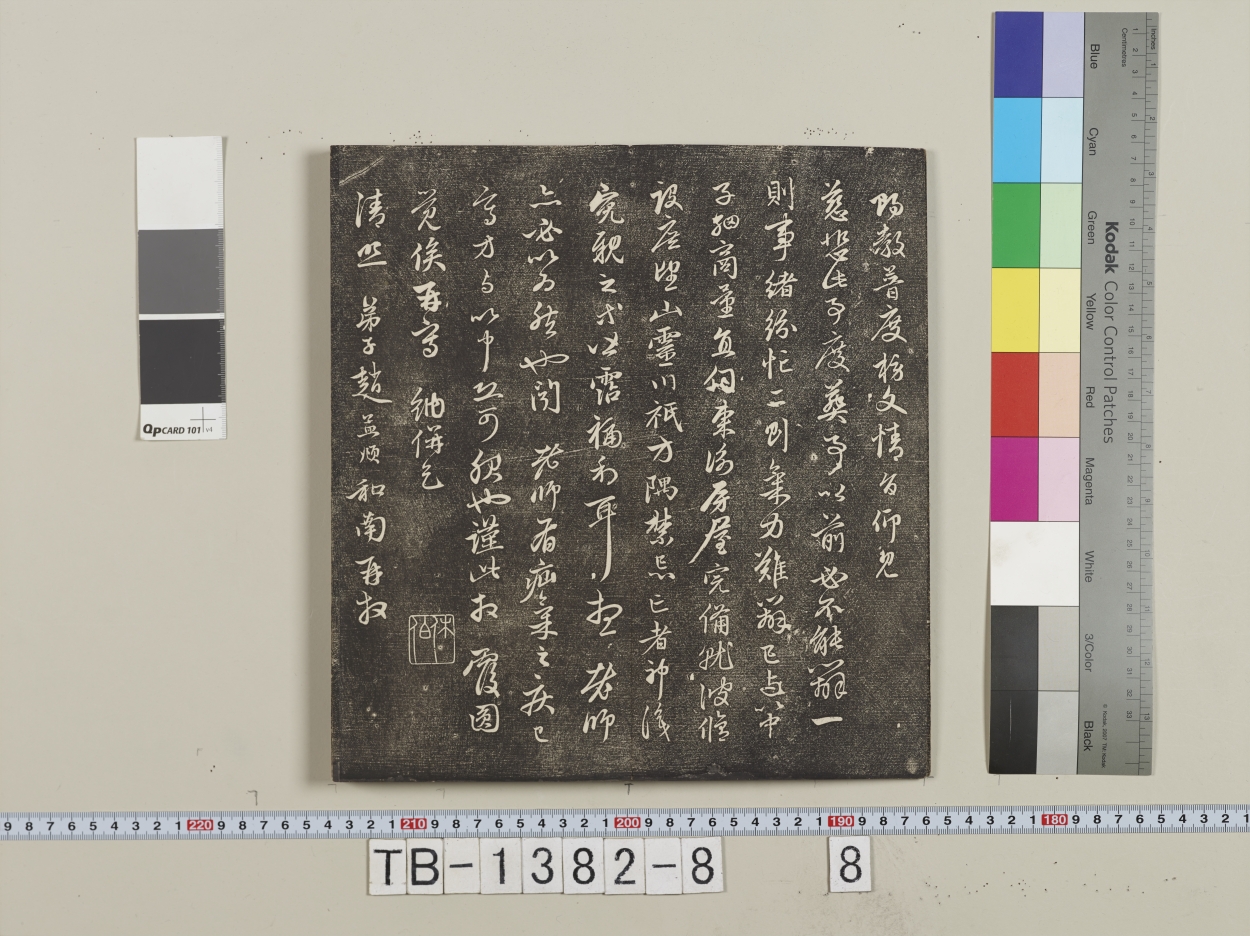 賜教普度榜文情旨仰見
慈悲此事度葬事以前必不能辦一
則事緒紛忙二則氣力難辦已与以中
子細商量直伺東衡房屋完備就彼修
設庶望山靈川祇方隅禁忌亡者神識
冤親之等皆霑福利耳想 老師
亦必以為然也聞 老師有疝氣之疾已
寫方与以中至可服也謹此拜覆圓
覺俟再寫 納併乞
清照 弟子趙孟頫和南再拜
QPCARD 101 v4
Kodak Color Control Patches
Blue Cyan Green Yellow Red Magenta White 3/Color Black
Inches
Centimetres
9 8 7 6 5 4 3 2 1 220 9 8 7 6 5 4 3 2 1 210 9 8 7 6 5 4 3 2 1 200 9 8 7 6 5 4 3 2 1 190 9 8 7 6 5 4 3 2 1 180 9 8 7 6 5 4 3 2 1
TB-1382-8 8